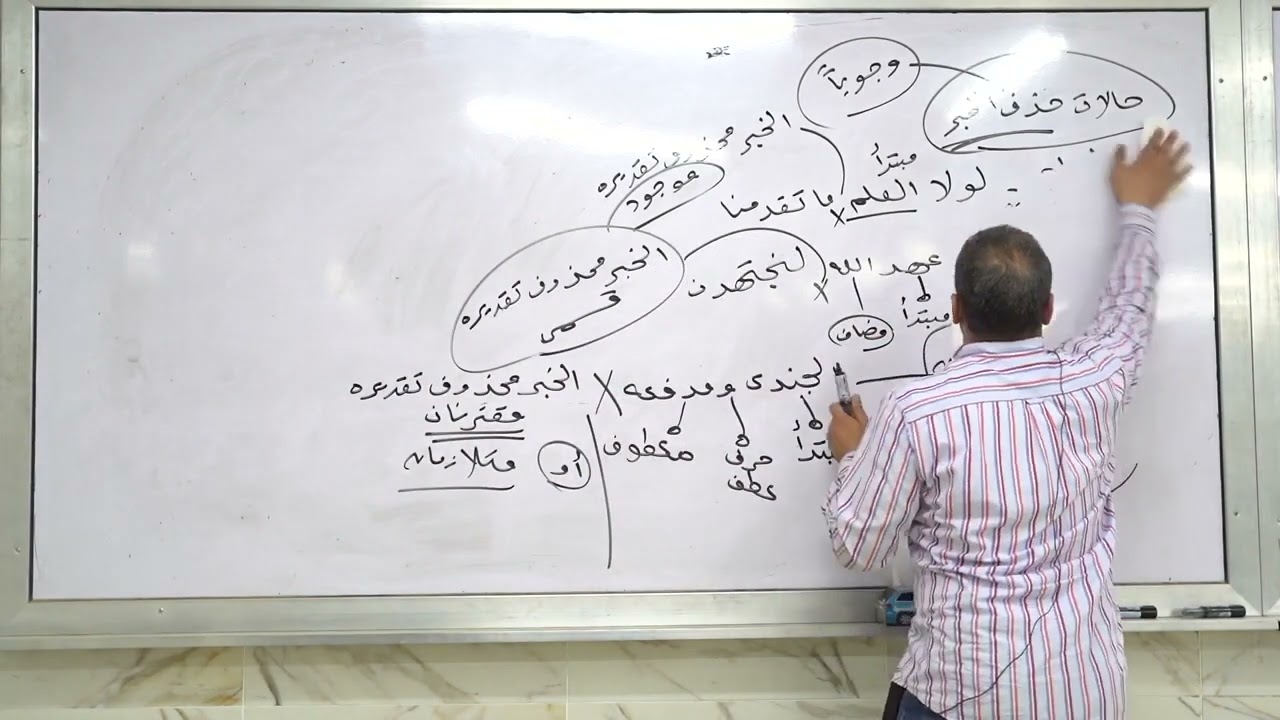 حالات حذف الخبر
وجوباً
الخبر محذوف تقديره
موجود
مبتدأ
لولا العلم ما تقدمنا
x
عهد الله لنجتهدن
x
مبتدأ
مضاف
الخبر محذوف تقديره
قسمى
الجندى ومدفعه
x
مبتدأ
حرف
عطف
معطوف
الخبر محذوف تقديره
مقترنان
أو متلازمان